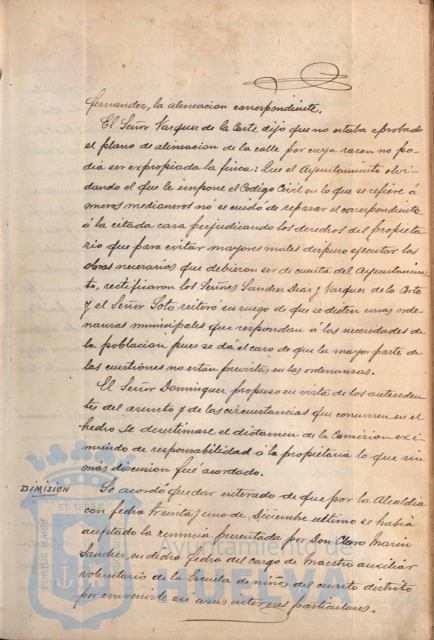 fernandez, la alineacion correspondiente.
El Señor Vazquez de la Corte dijo que no estaba aprobado
el plano de alineacion de la calle por cuya razon no po-
dia ser expropiada la finca: Que el Ayuntamiento olvi-
dando el que le impone el Codigo Civil en lo que se refiere á
muros medianeros no se cuidó de repasar el correspondiente
á la citada casa perjudicando los derechos del propieta-
rio que para evitar mayores males dispuso ejecutar las
obras necesarias que debieron ser de cuenta del Ayuntamien-
to, rectificaron los Señores Sanchez Diaz y Vazquez de la Corte
y el Señor Soto reiteró su ruego de que se dicten unas orde-
nanzas municipales que respondan á las necesidades de
la poblacion pues se dá el caso de que la mayor parte de
las cuestiones no estan previstas en las ordenanzas.
El Señor Dominguez propuso en vista de los anteceden-
tes del asunto y de las circustancias que concurren en el
hecho se desestimase el dictamen de la Comision exi-
miendo de responsabilidad á la propietaria lo que sin
más discusion fué acordado.
DIMISION
Se acordó quedar enterado de que por la Alcaldia
con fecha treinta y uno de Diciembre ultimo se habia
aceptado la renuncia presentada por Don Claro Marin
Sanchez, en dicha fecha del cargo de Maestro auxiliar
voluntario de la Escuela de niños del cuarto distrito
por convenirle asi a sus intereses particulares.
PORTUS MARIS
ET TERRAE
Ayuntamiento de
HUELVA